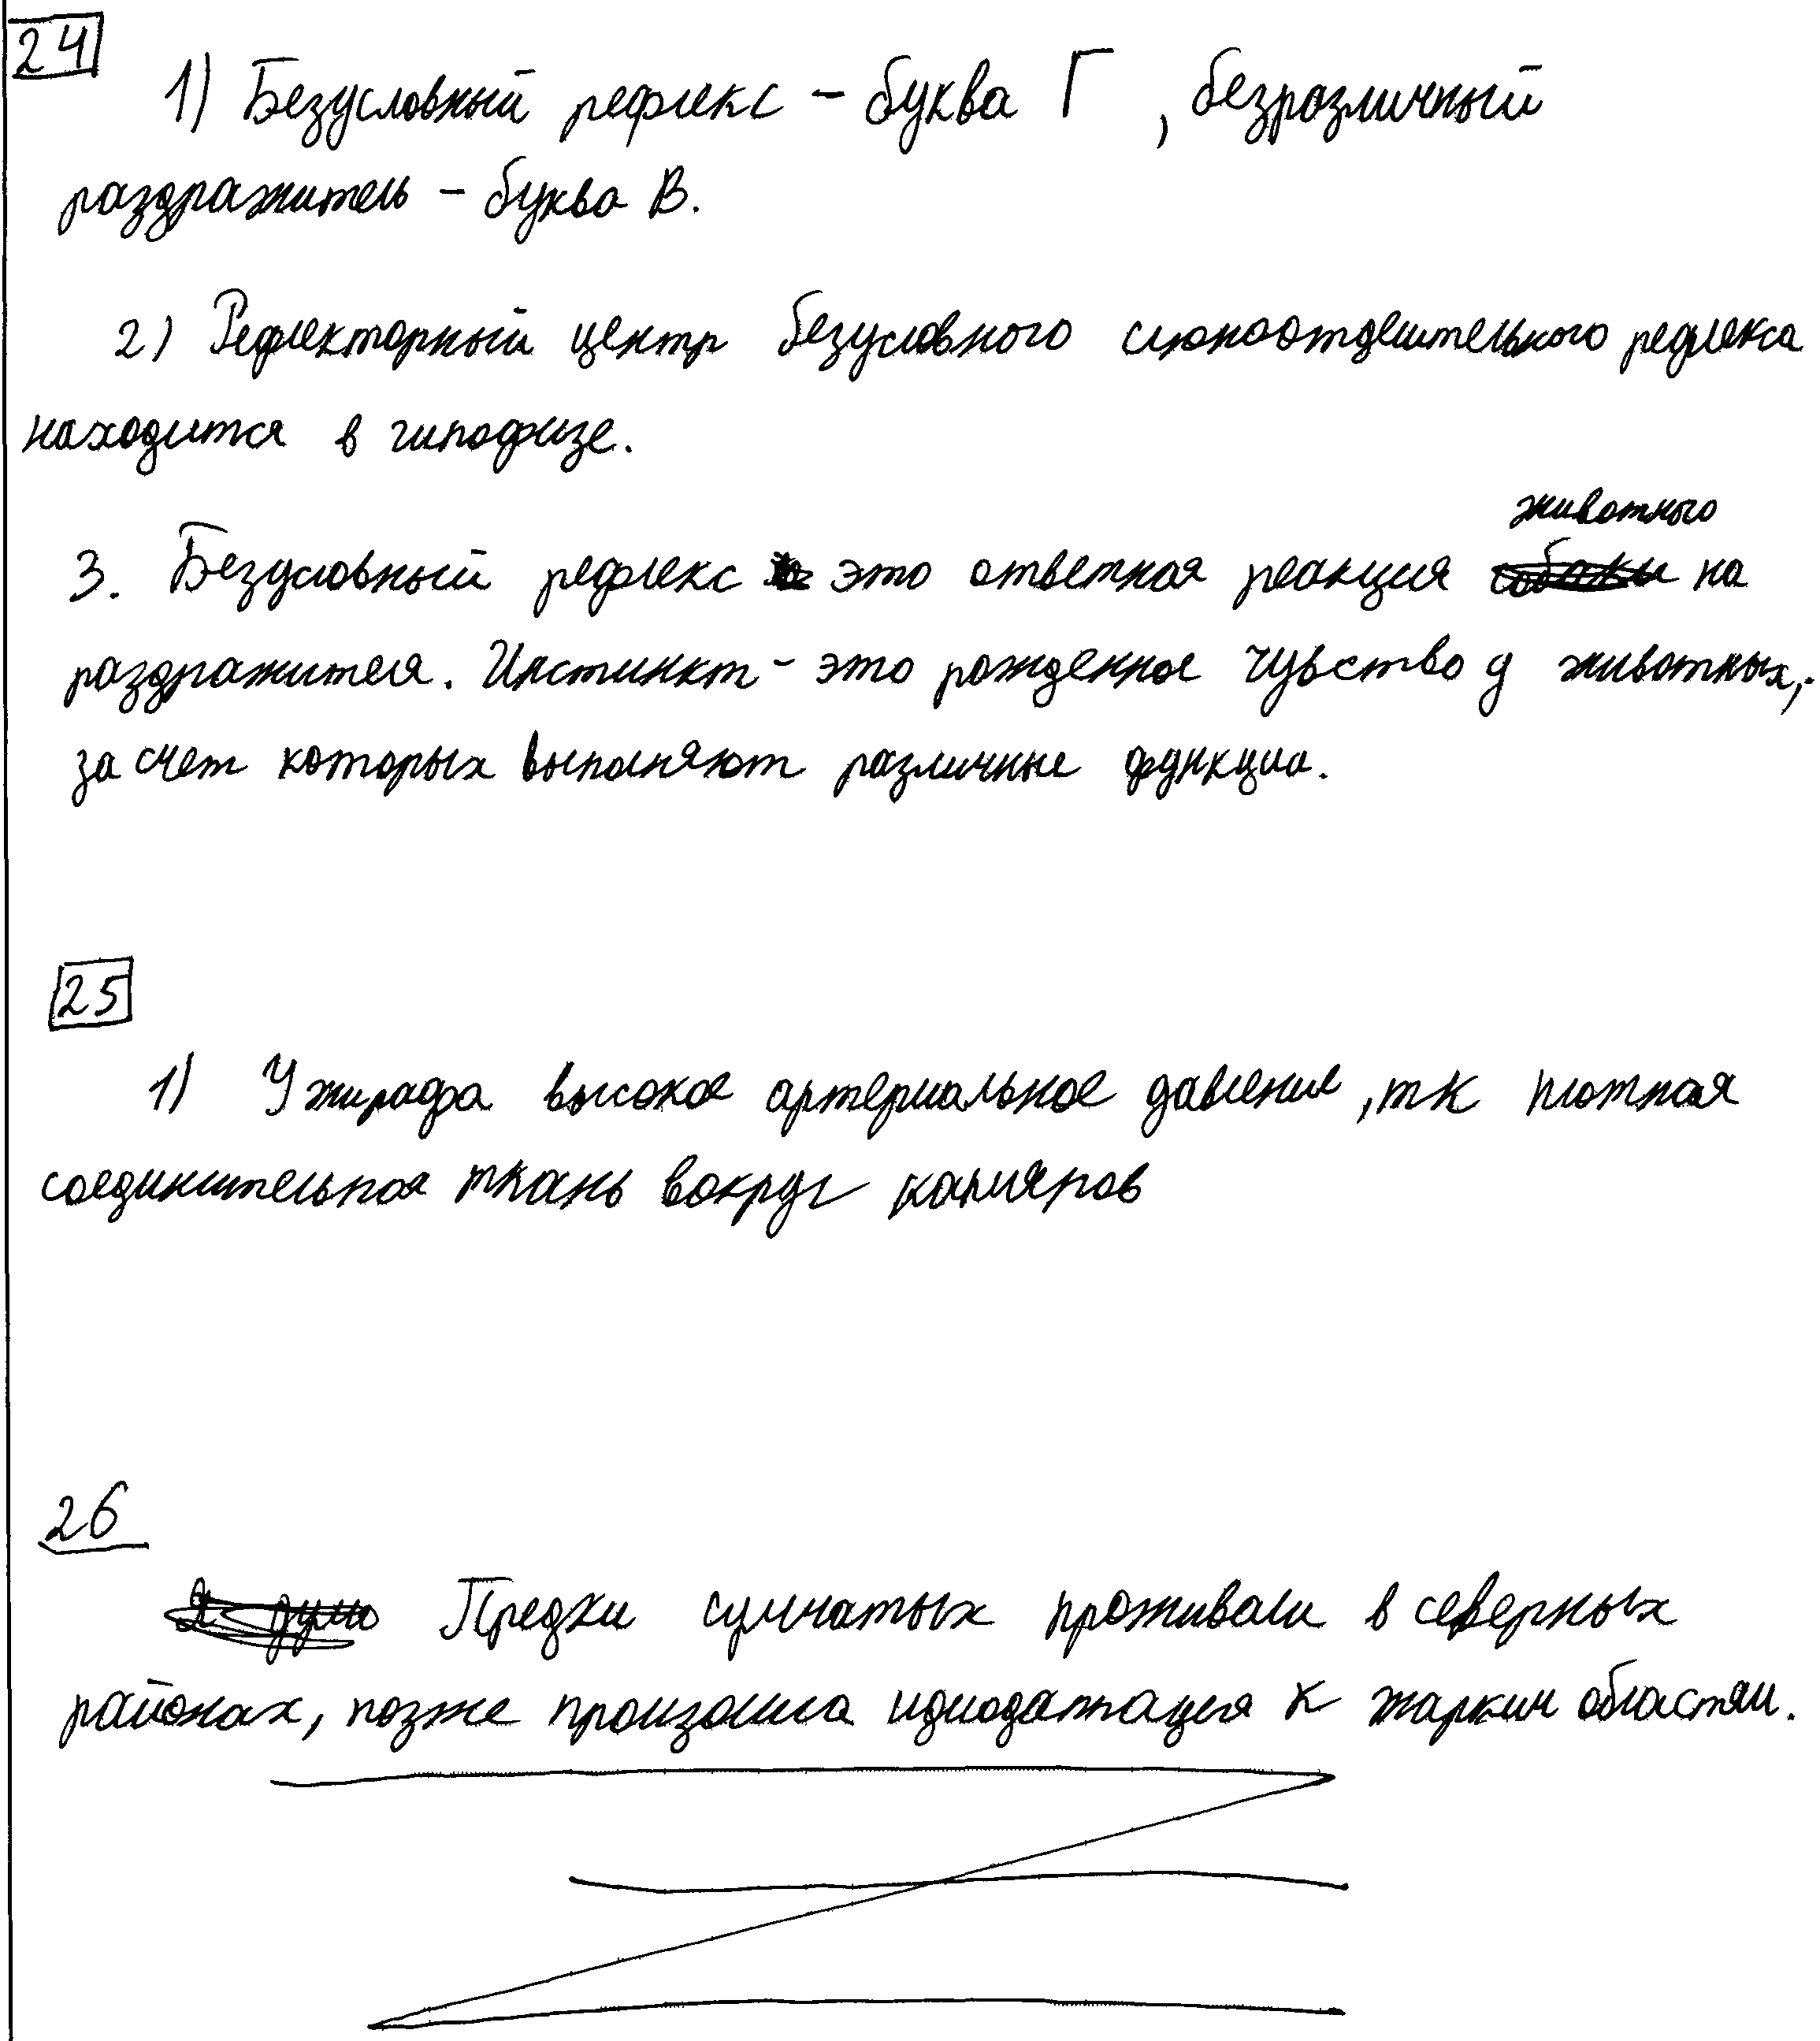 24
1) Безусловный рефлекс - буква Г, безразличный
раздражитель - буква В.
2) Рефлекторный центр безусловного слюноотделительного рефлекса
находится в гипофизе.
животного
3. Безусловный рефлекс это ответная реакция собаки на
раздражителя. Инстинкт - это рожденное чувство у животных,
за счет которых выполняют различные функции.
25
1) У жирафа высокое артериальное давление, тк плотная
соединительная ткань вокруг капиляров
26
Я думаю Предки сумчатых проживали в северных
районах, позже произошла идиодаптация к жарким областям.